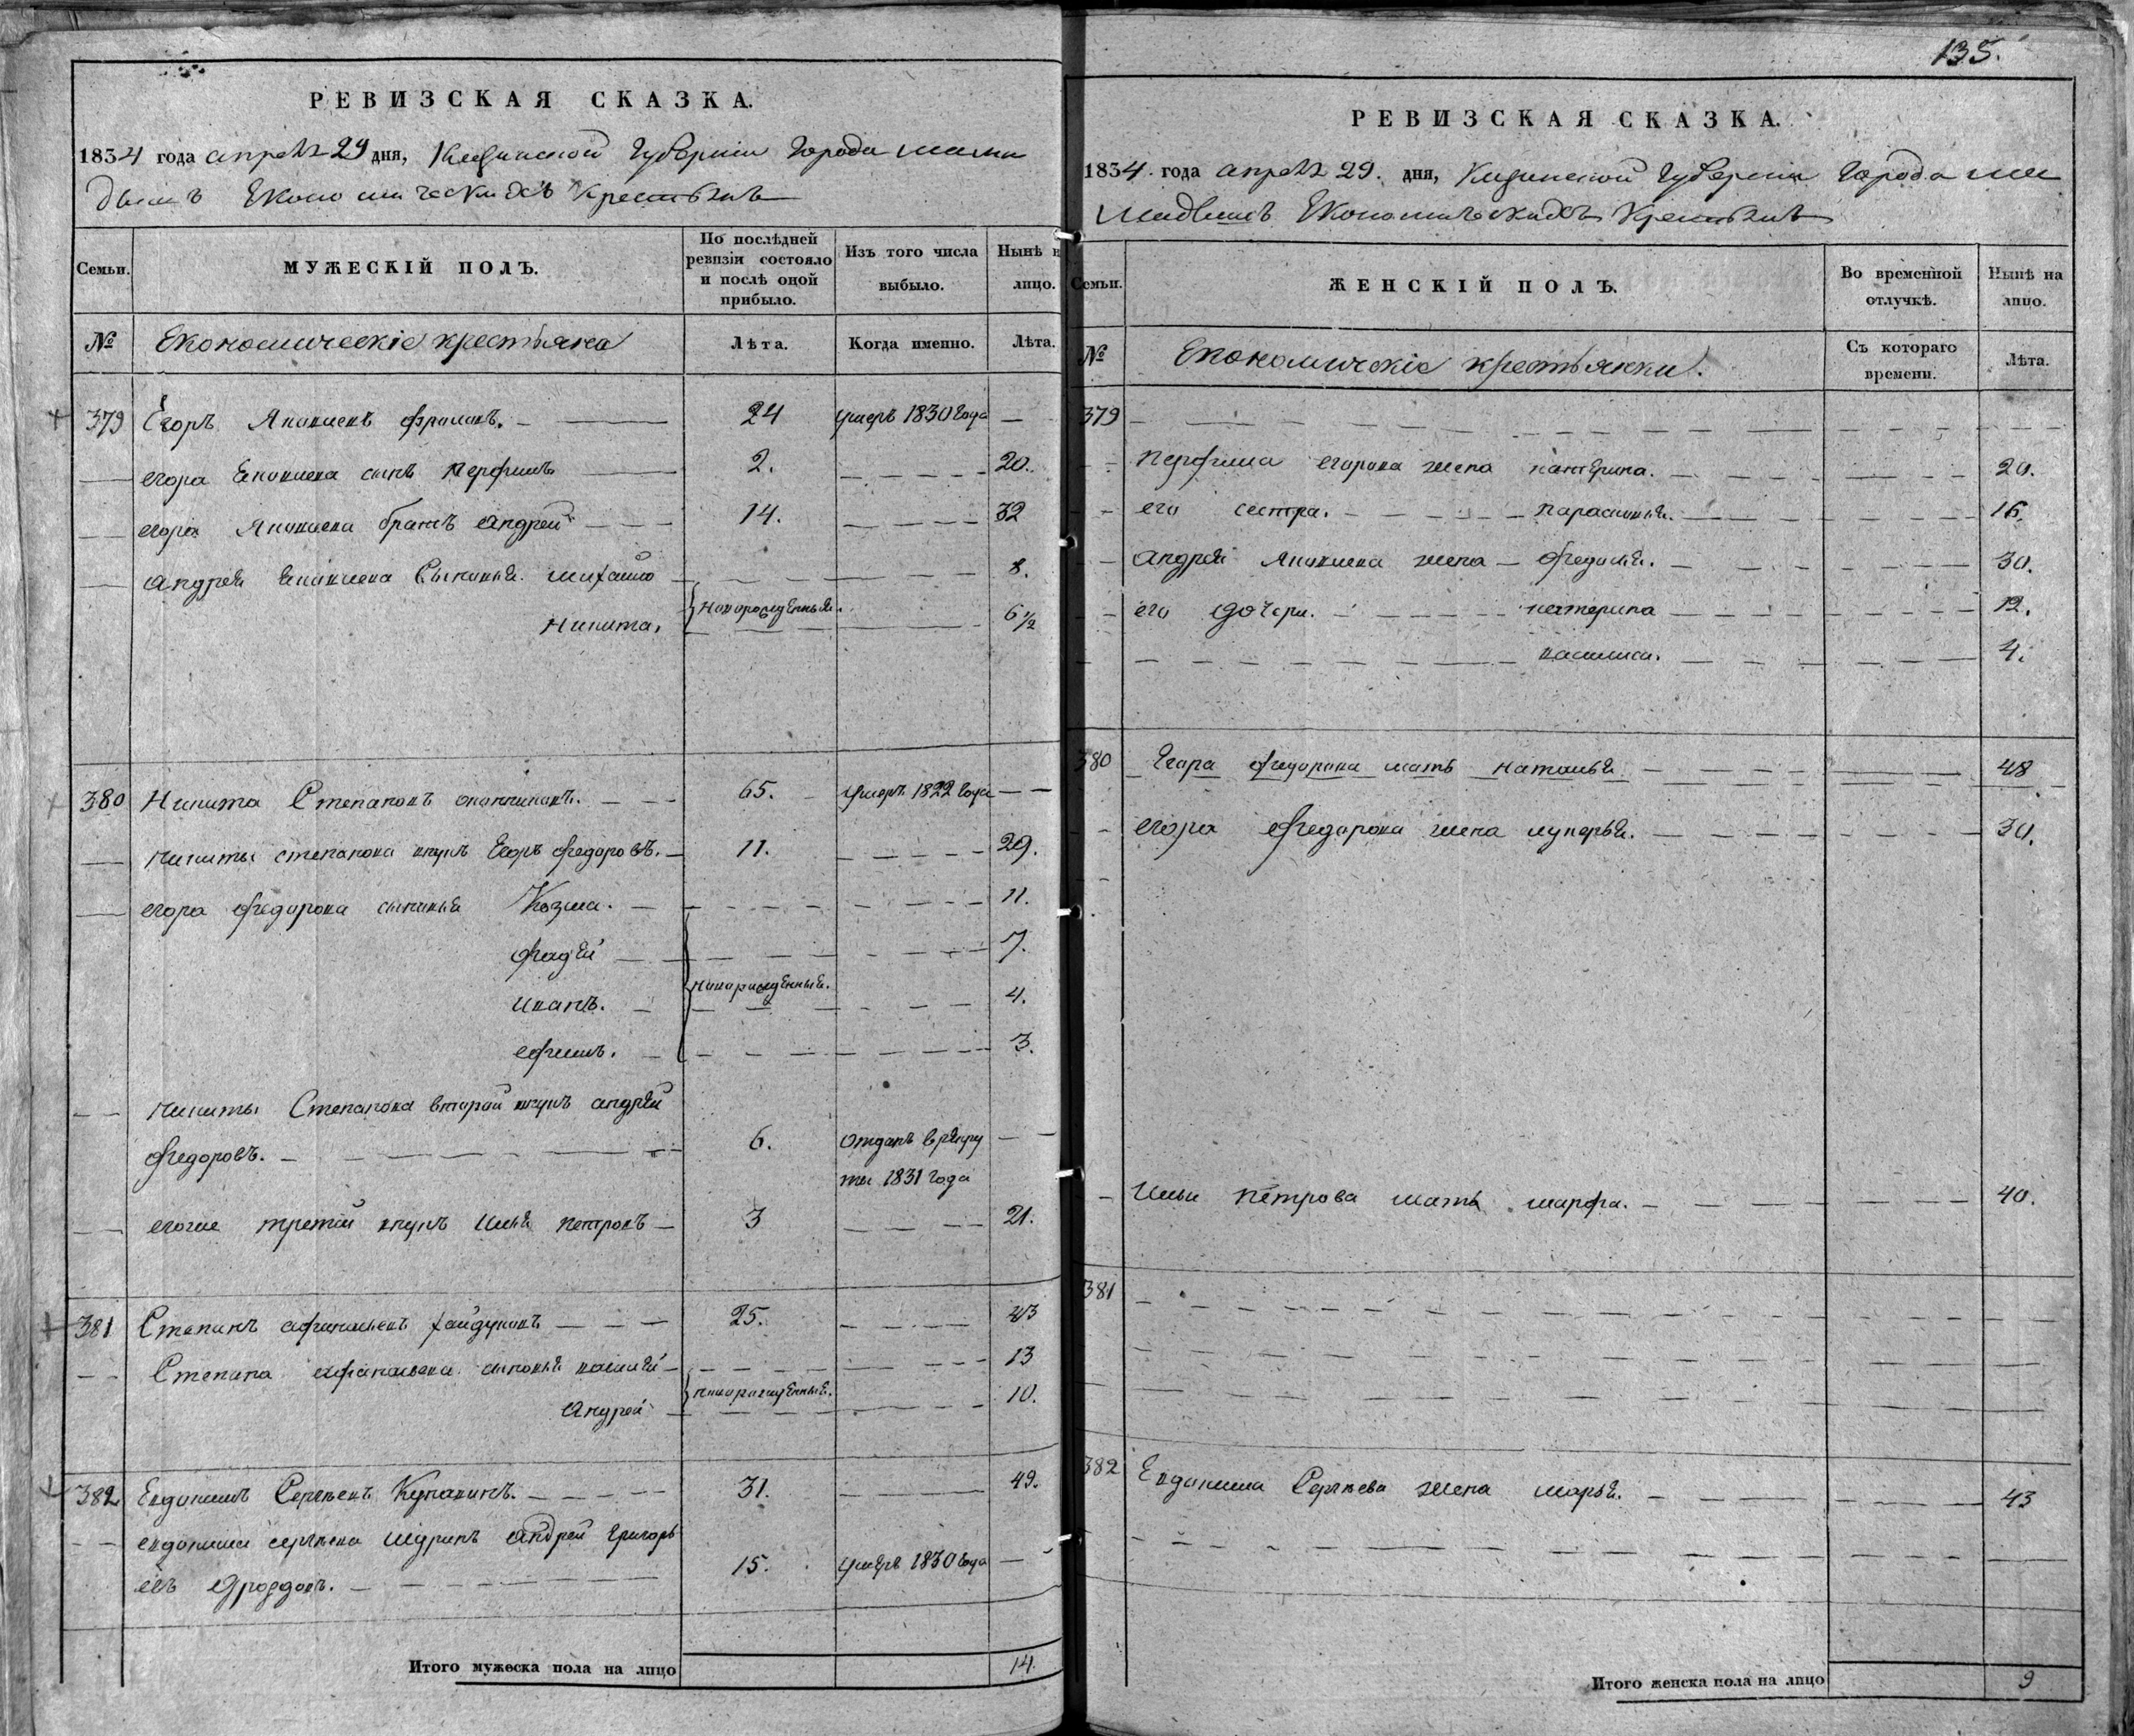 РЕВИЗСКАЯ СКАЗКА.
1834 года апреля 29 дня, Казанской Губернии Города Мама
дыша Экономическихъ крестьянъ
Семьи.
МУЖЕСКІЙ ПОЛЪ.
По послѣдней ревизіи состояло и послѣ оной прибыло.
Изъ того числа выбыло.
Нынѣ н лицо.
№
Економическіе крестьяне
Лѣта.
Когда именно.
Лѣта.
379 Егоръ 24 умеръ 1830 года —
егора сынъ Перфилъ 2. 20.
егора братъ андрей 14. 32
андрея Сыновья михайло 8.
Никита. новорожденныя. 6 1/2
380 Никита Степановъ 65. умеръ 1822 года —
никиты степанова внукъ Егоръ федоровъ. 11. 29.
егора федорова сыновья Козма. 11.
фадѣй 7.
иванъ. новорожденныя. 4.
ефимъ. 3.
никиты Степанова второй внукъ андрѣй
федоровъ. 6. отданъ в рекру —
ты 1831 года
егоже третій внукъ Илья петровъ 3 21.
381 Степанъ афанасьевъ хайдуковъ 25. 43
Степана афанасьева сыновья 13
андрей новорожденныя. 10.
382 Евдокимъ Сергѣевъ Кулакинъ. 31. 49.
евдокима сергѣева шуринъ андрей григорь
евъ Дроздовъ. 15. умеръ 1830 года —
Итого мужеска пола на лицо 14.
135.
РЕВИЗСКАЯ СКАЗКА.
1834. года апреля 29. дня, Казанской Губернии Города Ма
мадыша Экономическихъ Крестьянъ
Семьи.
ЖЕНСКІЙ ПОЛЪ.
Во временной отлучкѣ.
Нынѣ на лицо.
№
Економическіе крестьянки.
Съ котораго времени.
Лѣта.
379
егорова жена катерина. 20.
его сестра. парасковья. 16.
андрея жена федосья. 30.
его дочери. катерина 12.
василиса. 4.
380 Егора федорова мать наталья 48
егора федорова жена лукерья. 30.
Ильи петрова мать марфа. 40.
381
382 Евдокима Сергѣева жена марья. 43
Итого женска пола на лицо 9